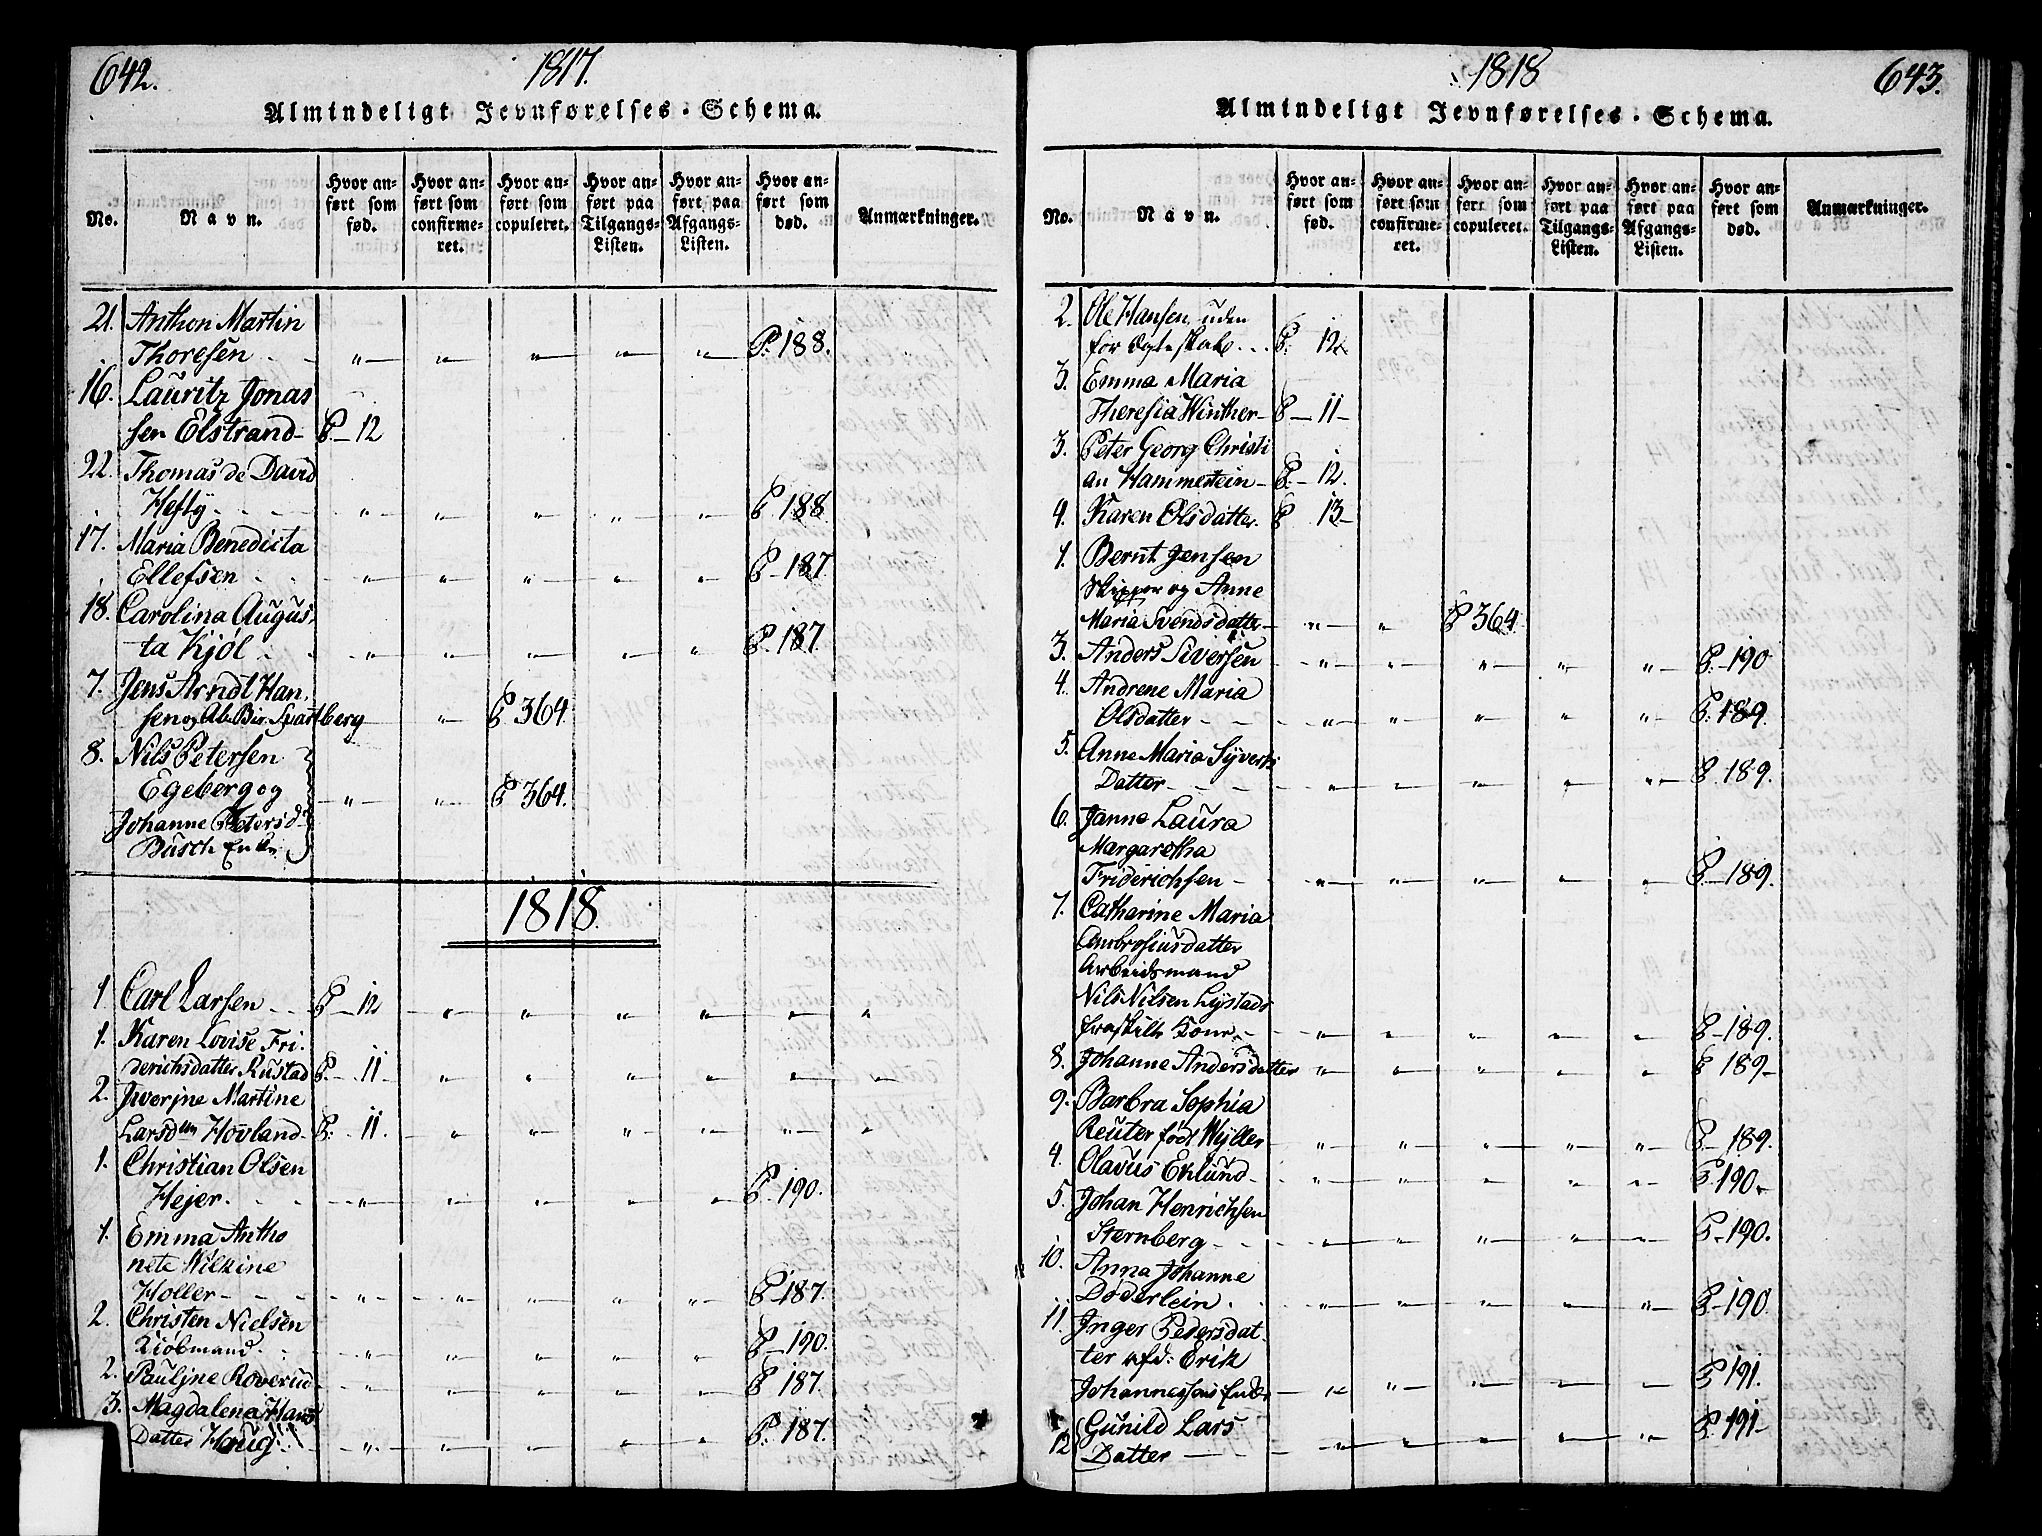 642.
1817.
Almindeligt Jevnførelses-Schema.
No.
Navn.
Hvor an-
ført som
fød.
Hvor an-
ført som
confirme-
ret.
Hvor an-
ført som
copuleret.
Hvor an-
ført paa
Tilgangs-
Listen.
Hvor an-
ført paa
Afgangs-
Listen.
Hvor an-
ført som
død.
Anmærkninger.
21. Anthon Martin
Thoresen " " " " " P. 188.
16. Lauritz Jonas
sen Elstrand P. 12
22. Thomas de David
Hefty " " " " " P. 188
17. Maria Benedicta
Ellefsen " " " " " P. 187
18. Carolina Augus-
ta Kjøl " " " " " P. 187.
7. Jens Arndt Han-
sen og Ab. Bir. Svartberg " P 364.
8. Nils Petersen
Egeberg og " " P 364.
Johanne Petersd
Busch Enke
1818.
1 Carl Larsen P. 12 " " " " " "
1. Karen Lovise Fri-
derichsdatter Rustad P. 11 " " " " " "
2. Iverine Martine
Larsdtr Hovland P. 11. " " " " " "
1. Christian Olsen
Hejer " " " " " P. 190.
1. Emma Antho
nete Wilkine
Holler " " " " " P. 187.
2. Christen Nielsen
Kiøbmand " " " " " P. 190.
2. Pauline Roverud " " " " " P 187.
3. Magdalena Hans
Datter Haug " " " " " P. 187.
1818
643.
Almindeligt Jevnførelses-Schema.
No.
Navn.
Hvor an-
ført som
fød.
Hvor an-
ført som
confirme-
ret.
Hvor an-
ført som
copuleret.
Hvor an-
ført paa
Tilgangs-
Listen.
Hvor an-
ført paa
Afgangs-
Listen.
Hvor an-
ført som
død.
Anmærkninger.
2. Ole Hansen uden
for Ægteskab P. 12
3. Emma Maria
Theresia Winther P 11
3. Peter Georg Christi
an Hammerstein P. 12.
4. Karen Olsdatter P 13
1. Bernt Jensen
Skipper og Anne
Maria Svendsdatter " " P 364.
3. Anders Siversen " " " " " P. 190
4. Andrene Maria
Olsdatter " " " " " P. 189.
5. Anne Maria Syverts
Datter " " " " " P 189.
6. Janna Laura
Margaretha
Friderichsen " " " " " P. 189.
7. Catharine Maria
Ambrosiusdatter
Arbeidsmand
Nils Nilsen Lystads
fraskilte Kone " " " " " P. 189.
8. Johanne Andersdatter " " " " " P 189
9. Barbra Sophia
Reuter født Wyller " " " " " P. 189.
4. Olavus Eklund " " " " " P. 190.
5. Johan Henrichsen
Sternberg " " " " " P. 190.
10. Anna Johanne
Døderlein " " " " " P. 190
11. Inger Pedersdat-
ter afd: Erik
Johannesens Enke " " " " " P. 191.
Gunild Lars
12 Datter " " " " " P. 191